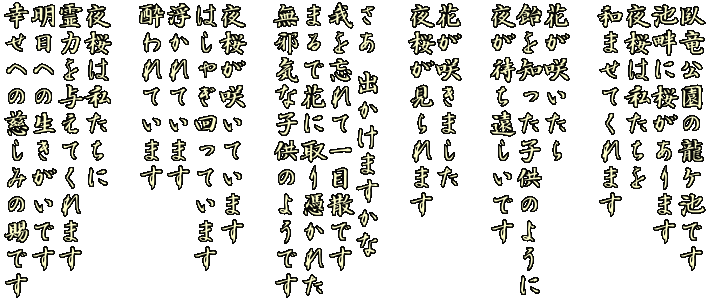 臥竜公園の龍ヶ池です
池畔に桜があります
夜桜は私たちを
和ませてくれます
花が咲いたら
飴を知った子供のように
夜が待ち遠しいです
花が咲きました
夜桜が見られます
さあ　出かけますかな
我を忘れて一目散です
まるで花に取り憑かれた
無邪気な子供のようです
夜桜が咲いています
はしゃぎ回っています
浮かれています
酔われています
夜桜は私たちに
霊力を与えてくれます
明日への生きがいです
幸せへの慈しみの賜です